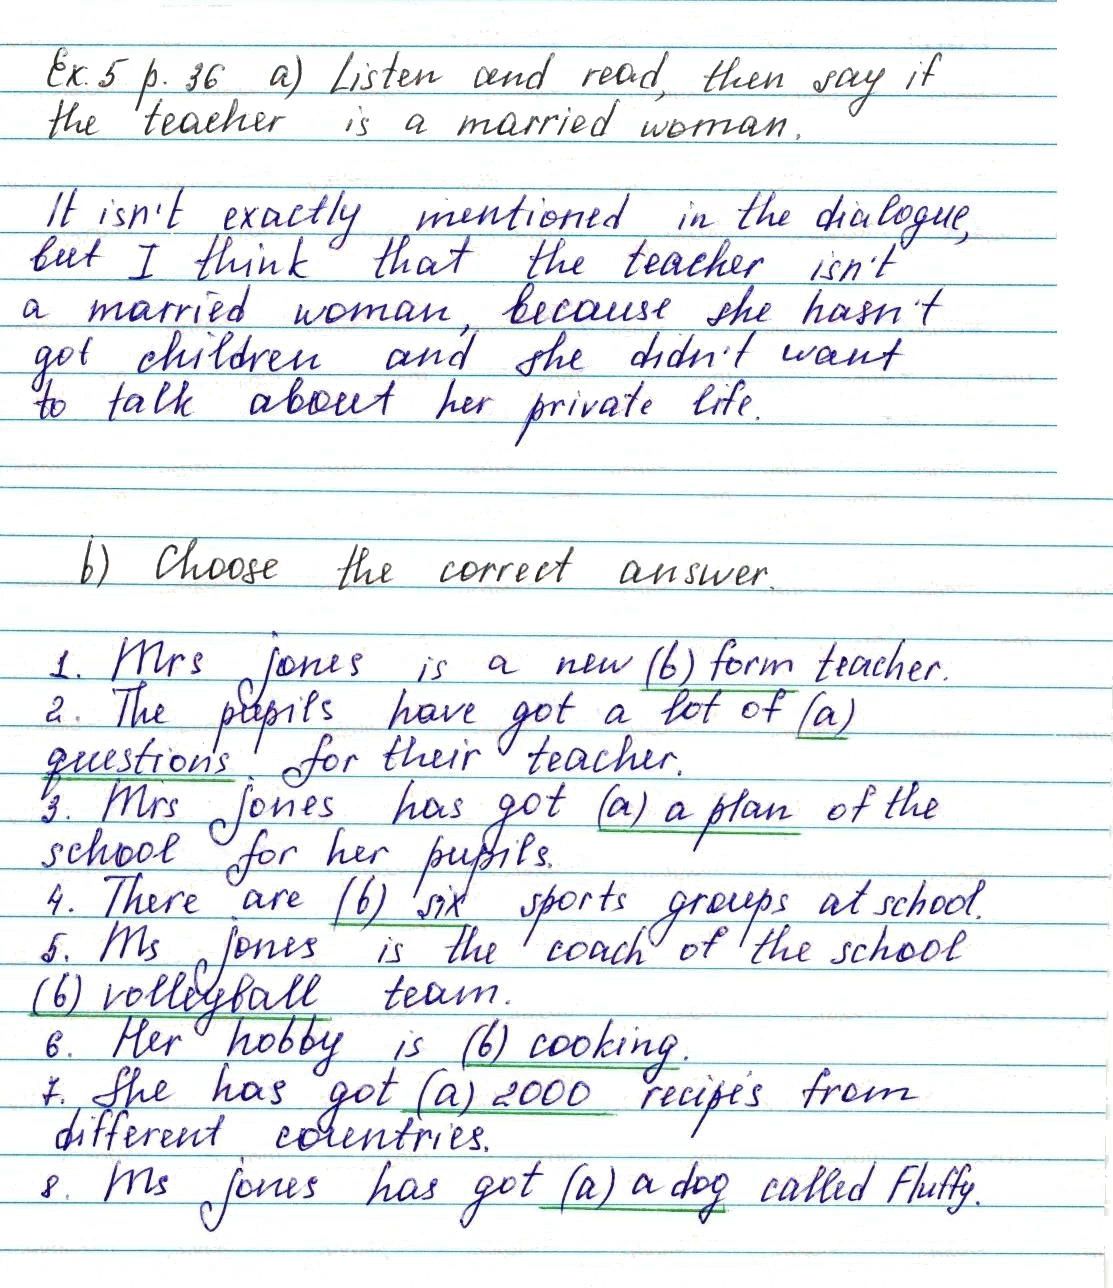 Ex. 5 p. 36 a) Listen and read, then say if
the teacher is a married woman.
It isn't exactly mentioned in the dialogue,
but I think that the teacher isn't
a married woman, because she hasn't
got children and she didn't want
to talk about her private life.
b) Choose the correct answer.
1. Mrs Jones is a new (b) form teacher.
2. The pupils have got a lot of (a)
questions for their teacher.
3. Mrs Jones has got (a) a plan of the
school for her pupils.
4. There are (b) six sports groups at school.
5. Ms Jones is the coach of the school
(b) volleyball team.
6. Her hobby is (b) cooking.
7. She has got (a) 2000 recipes from
different countries.
8. Ms Jones has got (a) a dog called Fluffy.